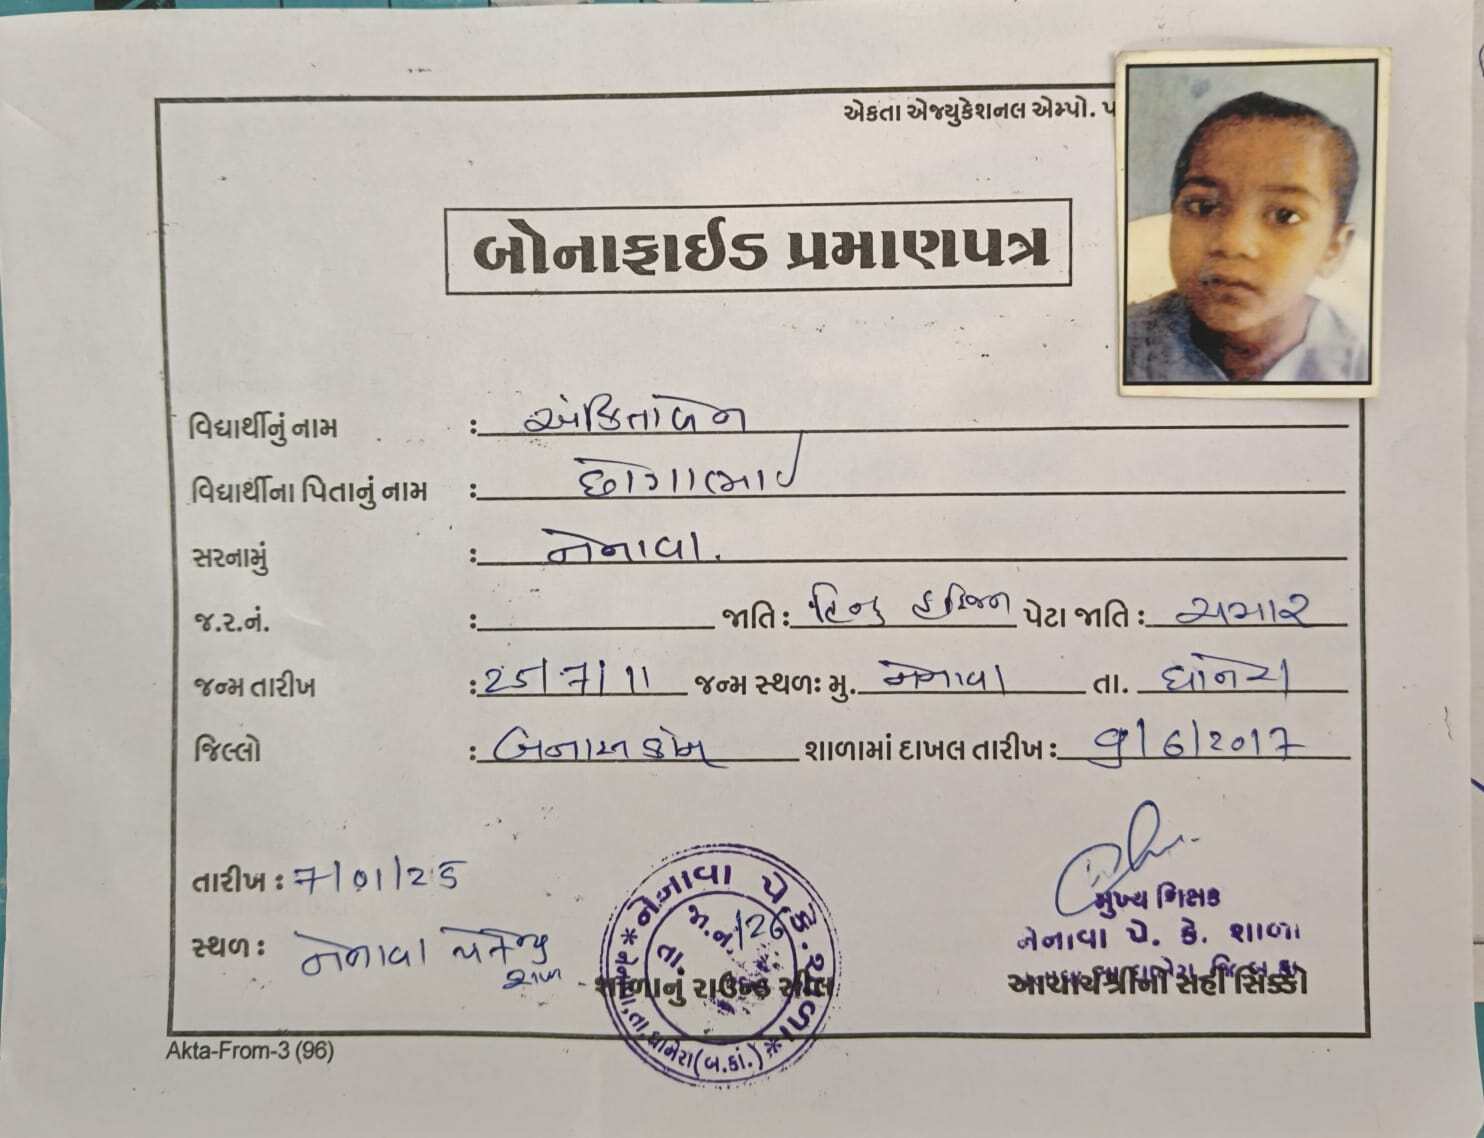 એકતા એજ્યુકેશનલ એમ્પો. પ
બોનાફાઈડ પ્રમાણપત્ર
વિદ્યાર્થીનું નામ : અંકિતાબેન
વિદ્યાર્થીના પિતાનું નામ : છોગાભાઈ
સરનામું : નેનાવા.
જ.ર.નં. : જાતિ : હિન્દુ હરિજન પેટા જાતિ : ચમાર
જન્મ તારીખ : 25/7/11 જન્મ સ્થળઃ મુ. નેનાવા તા. ધાનેરા
જિલ્લો : બનાસકાંઠા શાળામાં દાખલ તારીખ : 9/6/2017
તારીખ : 7/01/25
સ્થળ : નેનાવા પે કેન્દ્ર શાળા
નેનાવા પે. કે. શાળા * નેનાવા, તા. ધાનેરા (બ.કાં.) *
જા.ન. 126
તા.
શાળાનું રાઉન્ડ સીલ
મુખ્ય શિક્ષક
નેનાવા પે. કે. શાળા
આચાર્યશ્રીની સહી સિક્કો
Akta-From-3 (96)